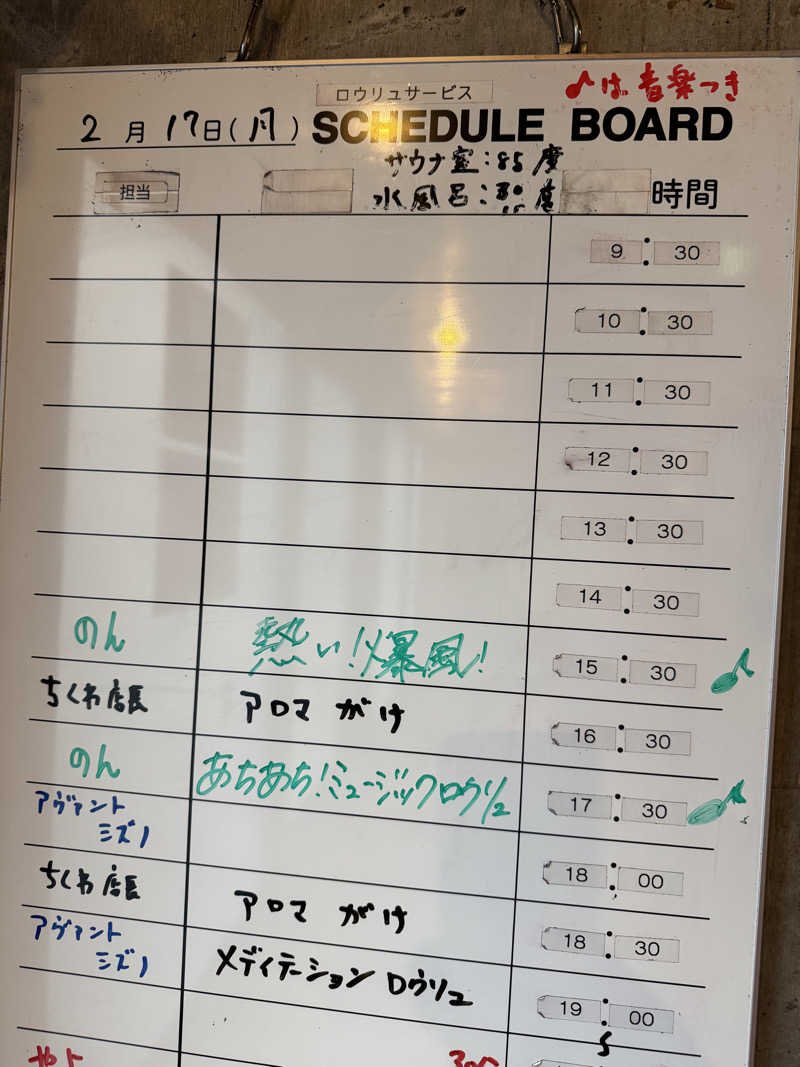 ロウリュサービス
♪は音楽つき
2月17日(月) SCHEDULE BOARD
サウナ室:85度
水風呂:
担当
時間
9:30
10:30
11:30
12:30
13:30
14:30
のん 熱い!爆風! 15:30 ♪
ちくわ店長 アロマがけ 16:30
のん あちあち!ミュージックロウリュ 17:30 ♪
アヴァント
ミズノ
18:00
ちくわ店長 アロマがけ 18:30
アヴァント
ミズノ
メディテーション ロウリュ 19:00